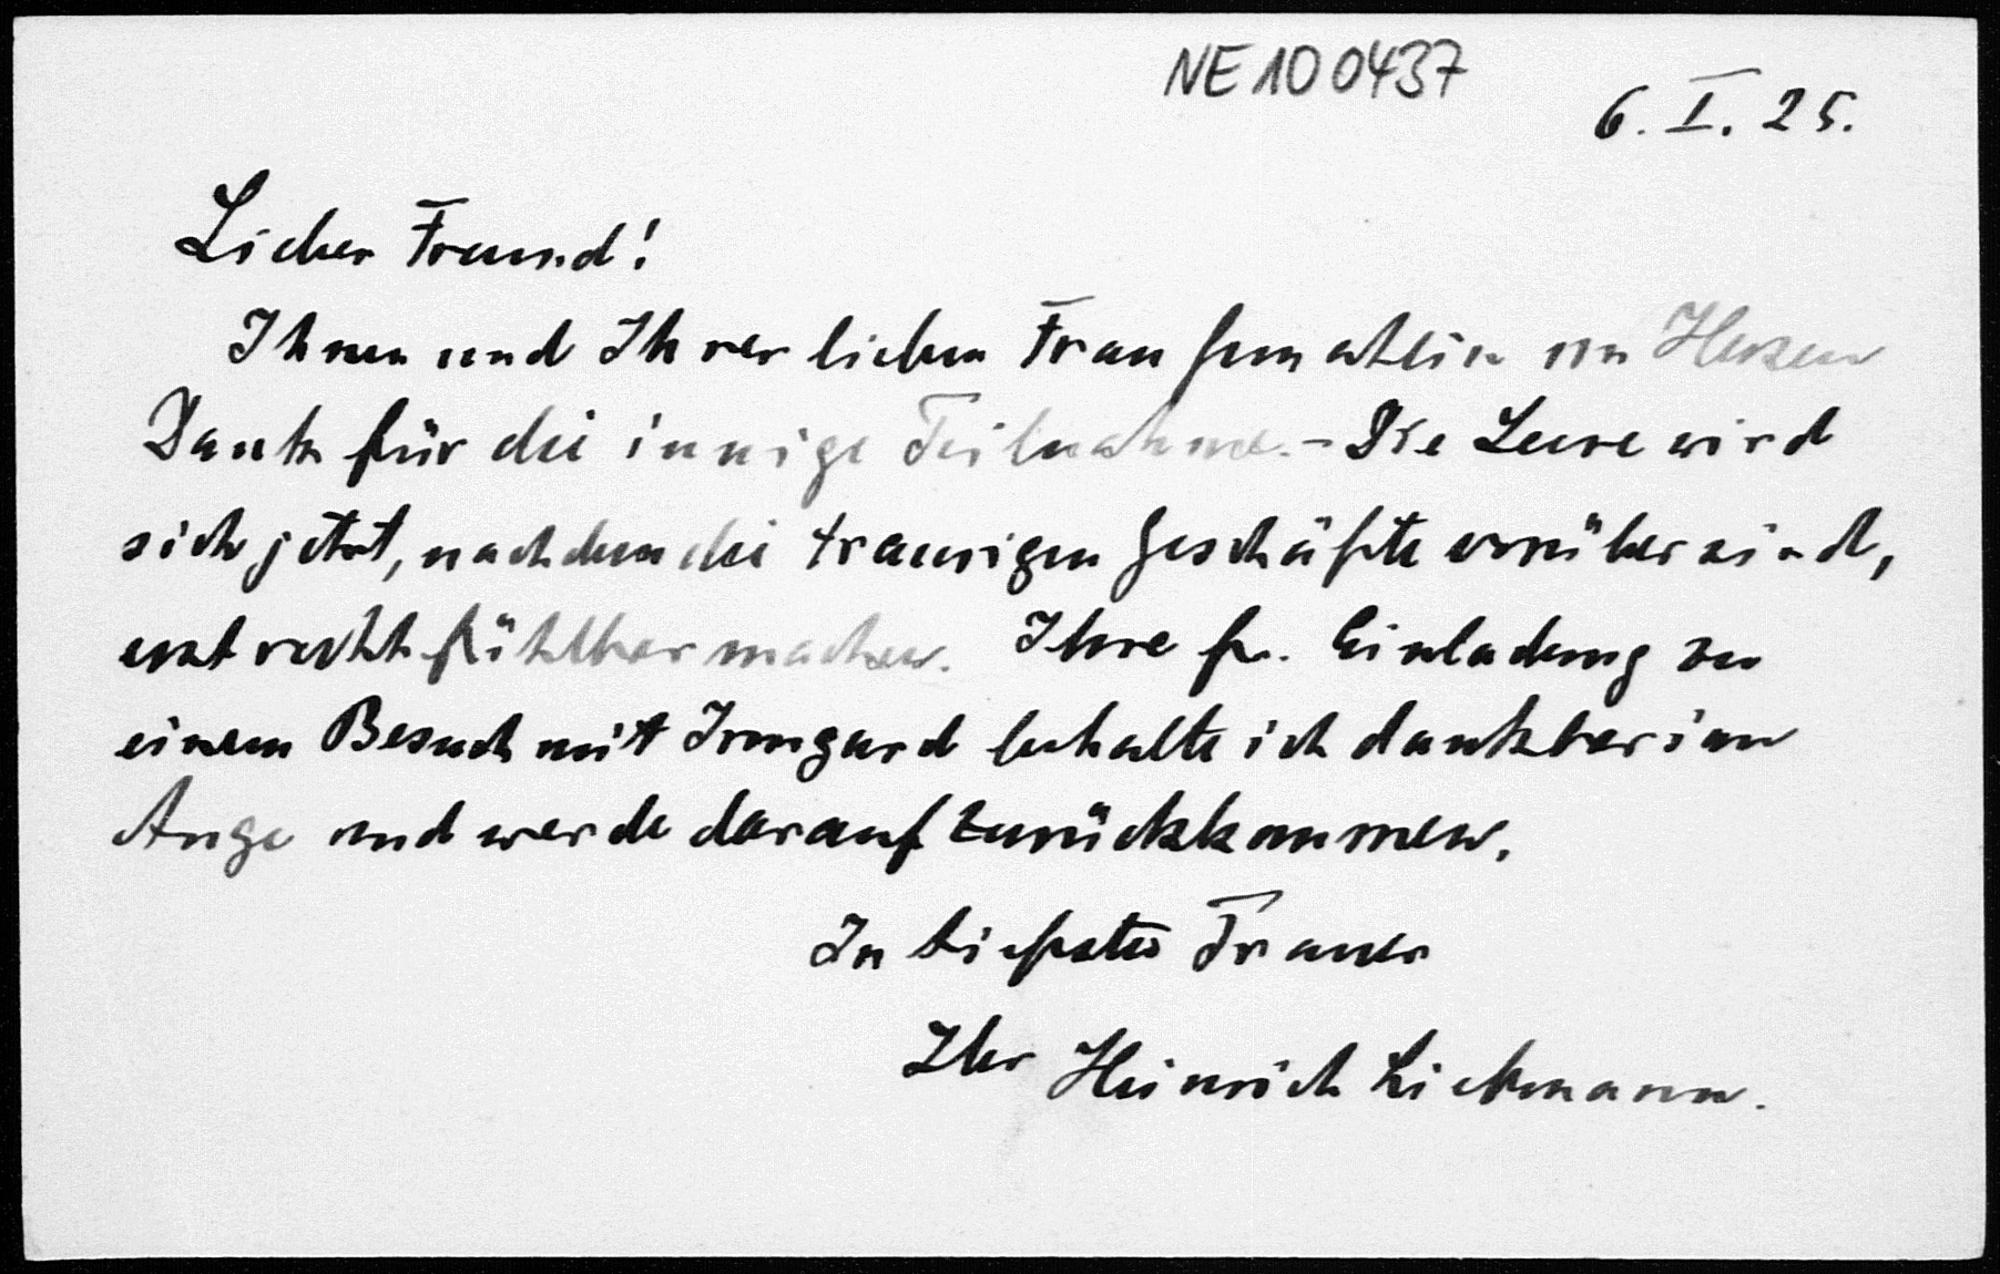 NE 10 0437
6. I. 25.
Lieber Freund!
Ihnen und Ihrer lieben Frau Gemahlin von Herzen
Dank für die innige Teilnahme. - Die Leere wird
sich jetzt, nachdem die traurigen Geschäfte vorüber sind,
erst recht fühlbar machen. Ihre fr. Einladung zu
einem Besuch mit Irmgard behalte ich dankbar im
Auge und werde darauf zurückkommen.
In tiefster Trauer
Ihr Heinrich Liebmann.